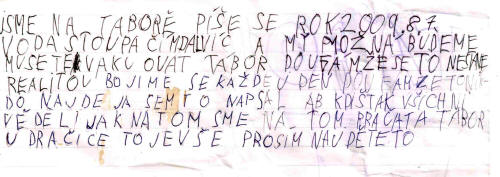 JSME NA TABOŘE PÍŠE SE ROK 2009, 8.7
VODA STOUPA ČIM DAL VIC A MY MOŽNA BUDEME
MUSET EVAKUOVAT TABOR DOUFAM ŽE SE TO NESTANE
REALITOU BOJIME SE KAŽDEJ DEN
DO NAJDE JA SEM TO NAPSAL ABKDIŠTAK VŠICHNI
VEDELI JAK NA TOM SME NA TOM BRACATA TABOR
U DRAČICE TO JE VŠE PROSIM NAJDĚTE TO